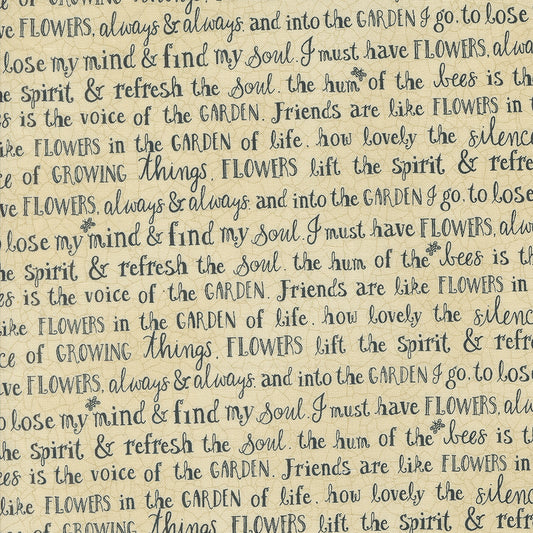 of GROWING things.
ve FLOWERS, always & always. and into the GARDEN I go, to lose
lose my mind & find my soul. I must have FLOWERS, alwa
he spirit & refresh the soul. the hum of the bees is th
s is the voice of the GARDEN. Friends are like FLOWERS in t
ike FLOWERS in the GARDEN of life. how lovely the silence
ce of GROWING things. FLOWERS lift the spirit & refre
ve FLOWERS, always & always. and into the GARDEN I go, to lose
o lose my mind & find my soul. I must have FLOWERS, alw
he spirit & refresh the soul. the hum of the bees is th
es is the voice of the GARDEN. Friends are like FLOWERS in
like FLOWERS in the GARDEN of life. how lovely the silenc
ce of GROWING things. FLOWERS lift the spirit & refr
ave FLOWERS, always & always. and into the GARDEN I go, to lose
o lose my mind & find my soul. I must have FLOWERS, alw
the spirit & refresh the soul. the hum of the bees is t
ees is the voice of the GARDEN. Friends are like FLOWERS in
like FLOWERS in the GARDEN of life. how lovely the silenc
ce of GROWING things. FLOWERS lift the spirit & refr